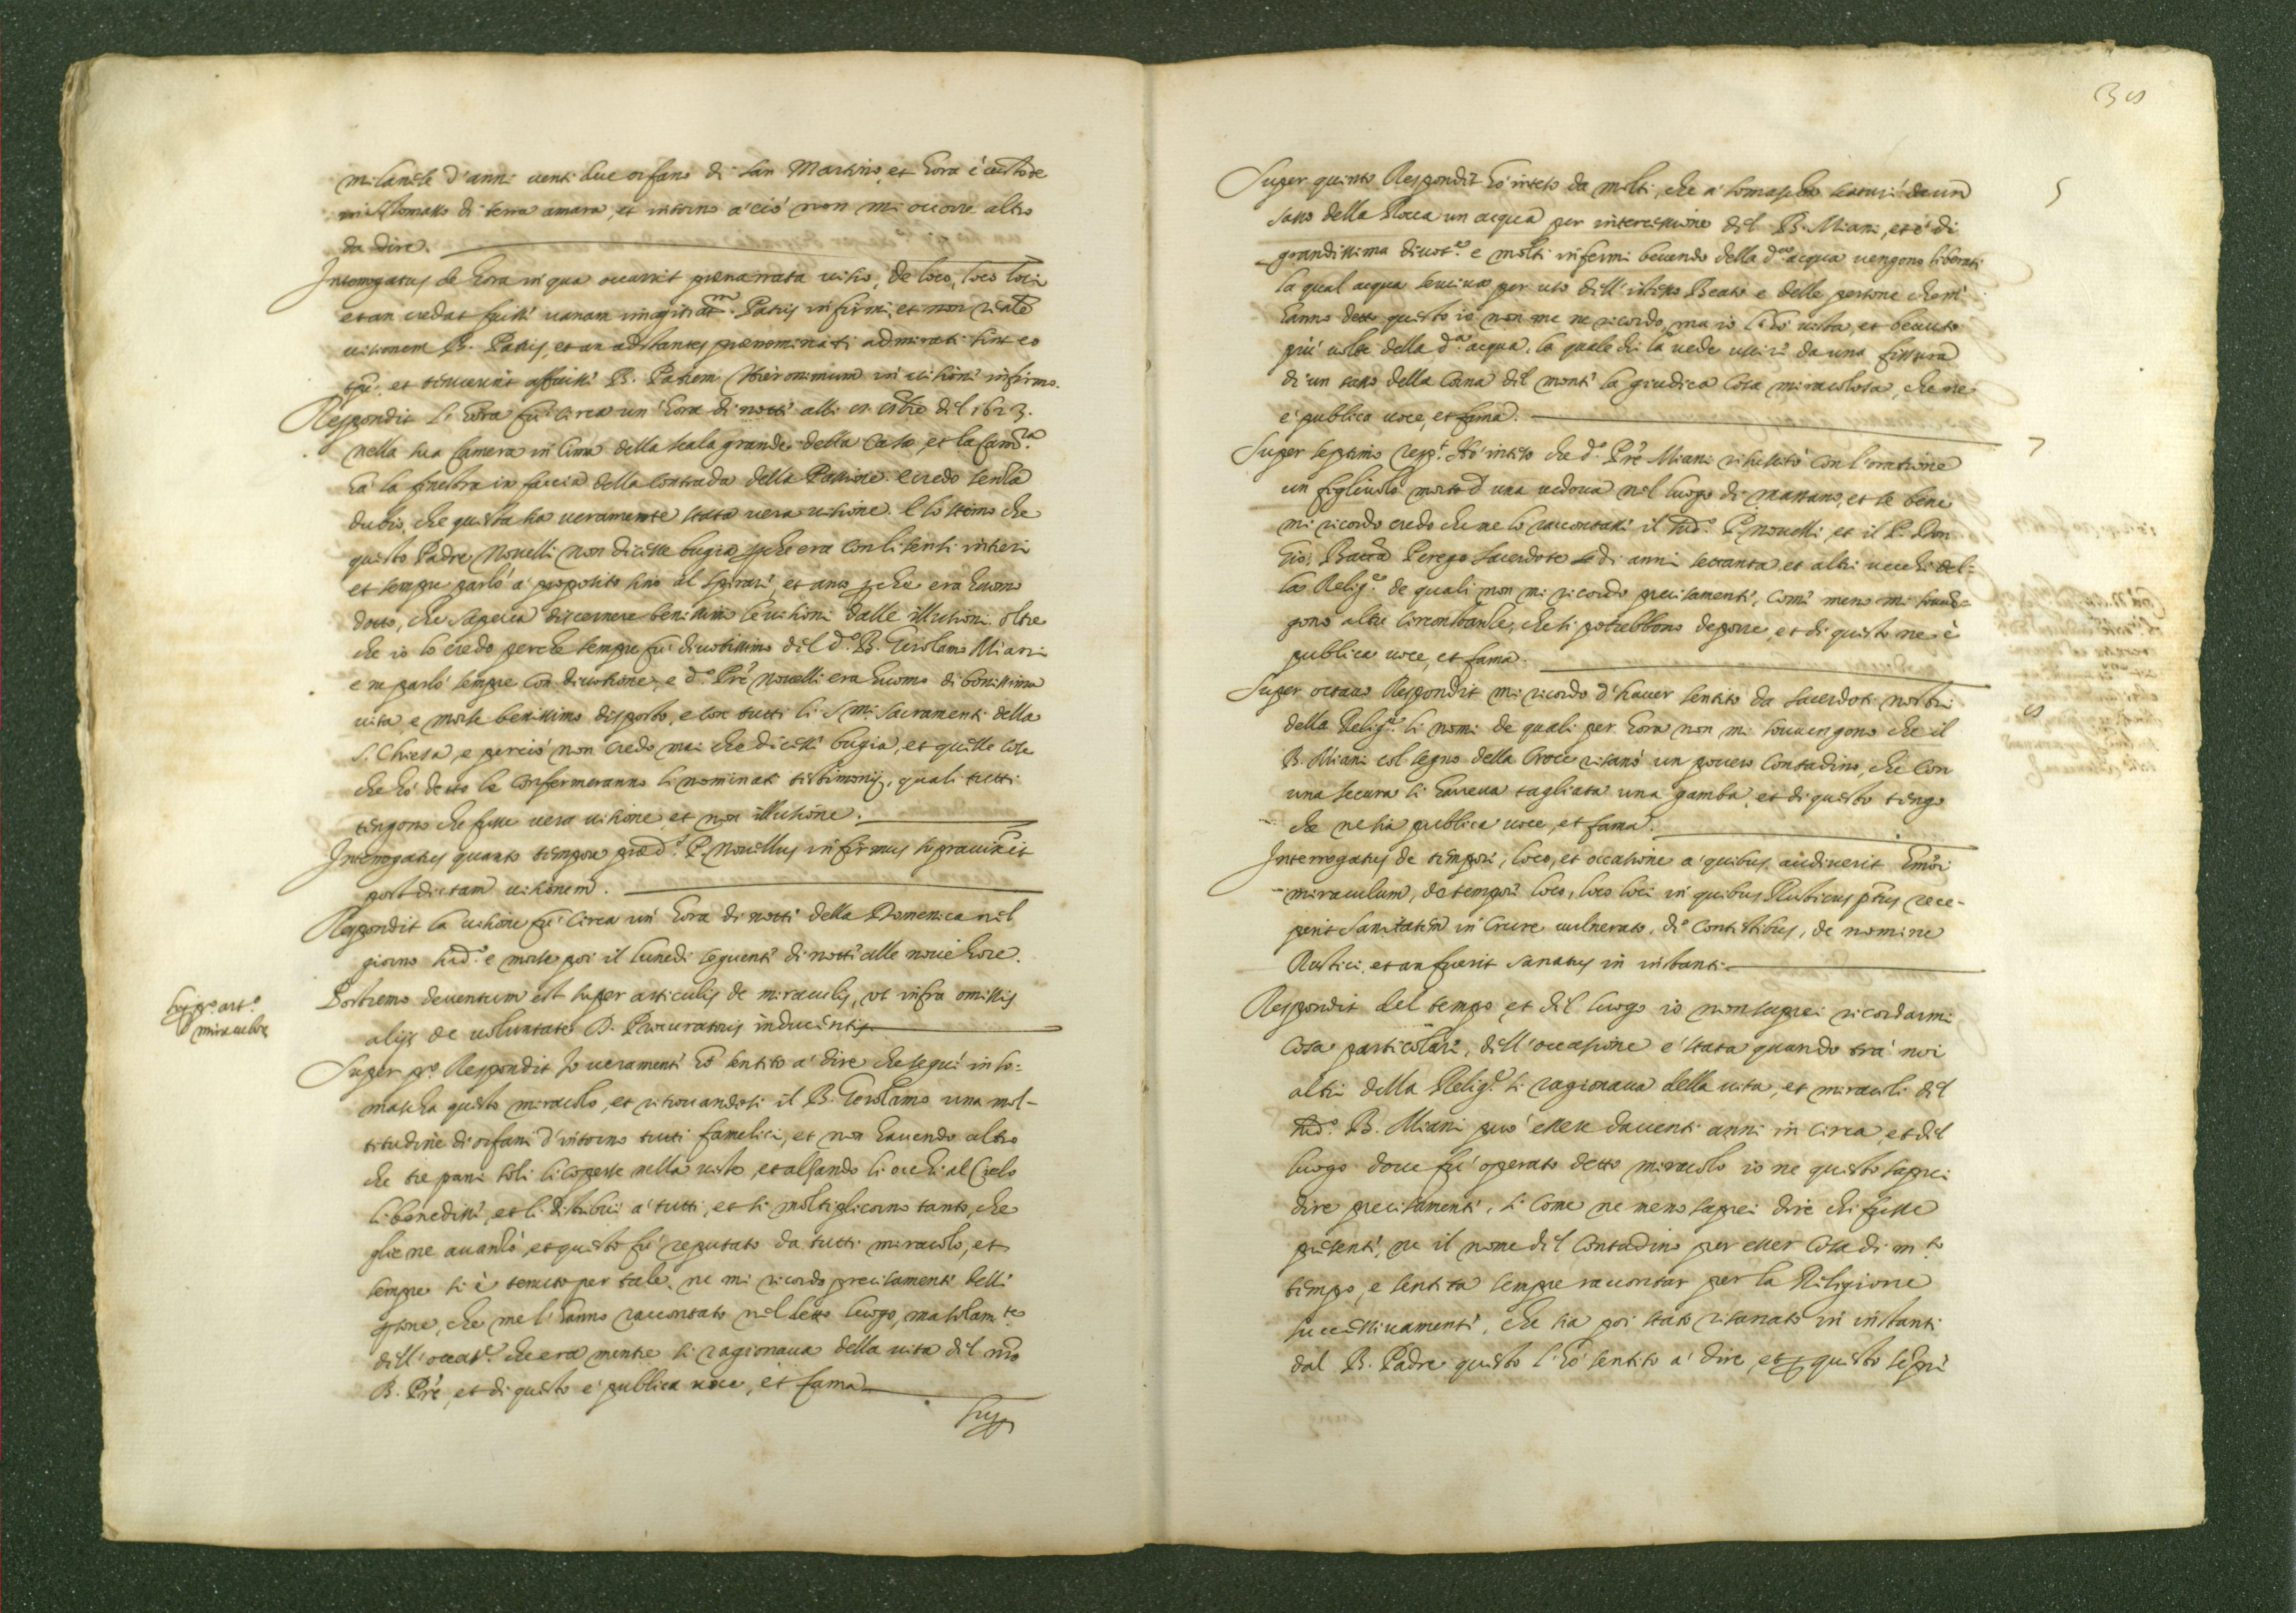 milanese d'anni venti due orfano di san Martino, et hora è custode
in S. Tomaso di terra amara, et intorno a ciò non mi occorre altro
da dire.
Interrogatus de hora in qua occurrit prenarrata visio, de loco, loco loci
et an credat fuisse vanam imaginat.m Patris infirmi, et non realē
visionem B. Patris, et an adstantes prenominati admirati sint eo
tpē. et tenuerint affuisse B. Patrem Hieronimum in visione infirmo.
Respondit l'hora fù circa un'hora di notte alli del 1623.
nella sua camera in cima della scala grande della casa, et la cam.ra
hà la finestra in faccia della contrada della Passione. e credo senza
dubio, che questa sia veramente stata vera visione. E lo stimo che
questo Padre Novelli non dicesse bugia perche era con li sensi intieri
et sempre parlò a' proposito sino al spirare, et anco perche era huomo
dotto, che sapeva discernere benissimo le visioni dalle illusioni. oltre
che io lo credo perche sempre fù divotissimo del d.o B. Gerolamo Miani
e ne parlò sempre con divotione, e d.o Prē Novelli era huomo di bonissima
vita, e morse benissimo disposto, e con tutti li S.mi Sacramenti della
S. Chiesa, e perciò non credo mai che dicesse bugia, et queste cose
che hò detto le confermeranno li nominati testimonij, quali tutti
tengono che fusse vera visione, et non illusione.
Interrogatus quanto tempore pred.s P. Novellus infirmus supravixit
post dictam visionem.
Respondit la visione fù circa un' hora di notte della Domenica nel
giorno sud.o e morse poi il lunedi seguente di notte alle nove hore.
Sup. p.o art.o
miraculor
Postremo deventum est super articulis de miraculis, ut infra omissis
alijs de voluntate D. Procuratoris inducentis.
Super p.o Respondit Io veramente hò sentito a' dire che seguì in so=
mascha questo miracolo, et ritrovandosi il B. Gerolamo una mol-
titudine di orfani d'intorno tutti famelici, et non havendo altro
che tre pani soli li coperse nella veste, et alzando li occhi al Cielo
li benedisse, et li distribuì a' tutti, et si moltiplicorno tanto, che
glie ne avanzò, et questo fù reputato da tutti miracolo, et
sempre si è tenuto per tale, ne mi ricordo precisamente delle
persone, che me l'hanno raccontato nel detto luogo, ma solam.te
dell'occas.e che era mentre si ragionava della vita del nrō
B. Prē, et di questo e' publica voce, et fama
Sup.
Super quinto Respondit hò inteso da molti, che a' somascha scaturì da un
sasso della Rocca un acqua per intercessione del B. Miani, et è di
grandissima divot.e e molti infermi bevendo della d.a acqua vengono liberati
la qual acqua serviva per uso dell'istesso Beato e delle persone che m'
hanno detto questo io non me ne ricordo, ma io l'hò vista, et bevuto
più volte della d.a acqua, la quale chi la vede uscire da una fissura
di un sasso della Corna del monte la giudica cosa miracolosa, che ne
e' publica voce, et fama.
5
Super septimo resp.t Hò inteso che d.o Prē Miani risuscitò con l'oratione
un figliuolo morto d'una vedova nel luogo di Manzano, et se bene
mi ricordo credo che me lo raccontasse il sud.o P. Novelli, et il P. Don
Gio: Batta Perego Sacerdote di anni settanta, et altri vecchi del-
la Relig.e de quali non mi ricordo precisamente, come meno mi sov=
gono altre circonstanze, che si potrebbono deporre, et di questo ne è
publica voce, et fama.
7
Super octavo Respondit mi ricordo d'haver sentito da sacerdoti nostri
della Relig.e li nomi de quali per hora non mi sovvengono che il
B. Miani col segno della Croce risanò un povero Contadino, che con
una secura si haveva tagliata una gamba, et di questo tengo
che ne sia publica voce, et fama.
Interrogatus de tempore, loco, et occasione a' quibus audiverit
miraculum, de tempore loco, loco loci in quibus Rusticus p.tus rece-
perit sanitatem in Crure vulnerato, de Contestibus, de nomine
Rustici, et an fuerit sanatus in instanti
Respondit del tempo et del luogo io non saprei ricordarmi
cosa particolare, dell'occasione è stata quando trà noi
altri della Relig.e si ragionava della vita, et miracoli del
sud.o B. Miani può esser da venti anni in circa, et del
luogo dove fù operato detto miracolo io ne questo saprei
dire precisamente, si come ne meno saprei dire chi fusse
presente, ne il nome del Contadino per esser cosa di m.to
tempo, e sentita sempre raccontar per la Religione
successivamente, che sia poi stato risanato in instante
dal B. Padre questo l'hò sentito a' dire, et questo sempre